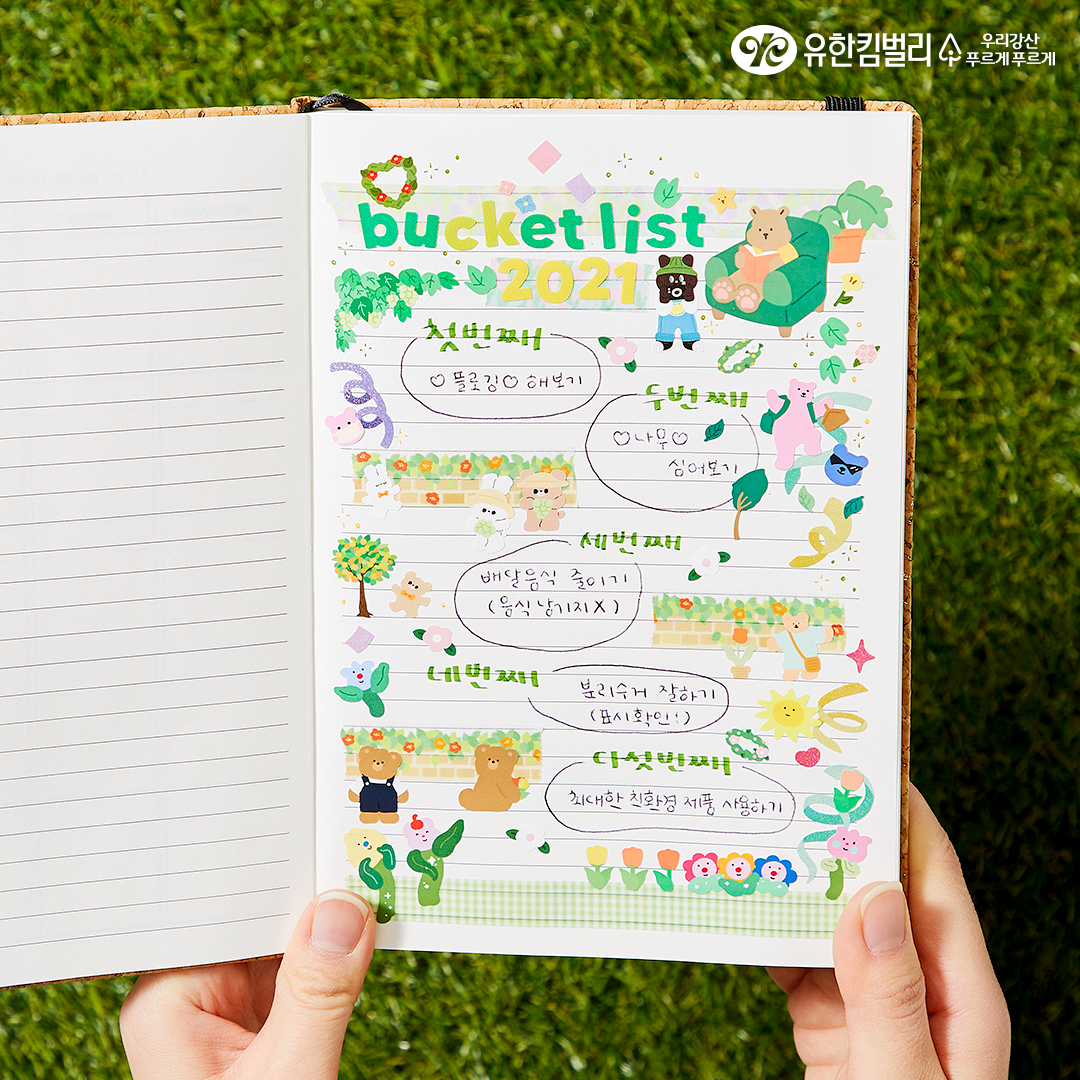 유한킴벌리
우리강산
푸르게 푸르게
bucket list
2021
첫번째
♡플로깅♡ 해보기
두번째
♡나무♡
심어보기
세번째
배달음식 줄이기
(음식 남기지X)
네번째
분리수거 잘하기
(표시확인!)
다섯번째
최대한 친환경 제품 사용하기